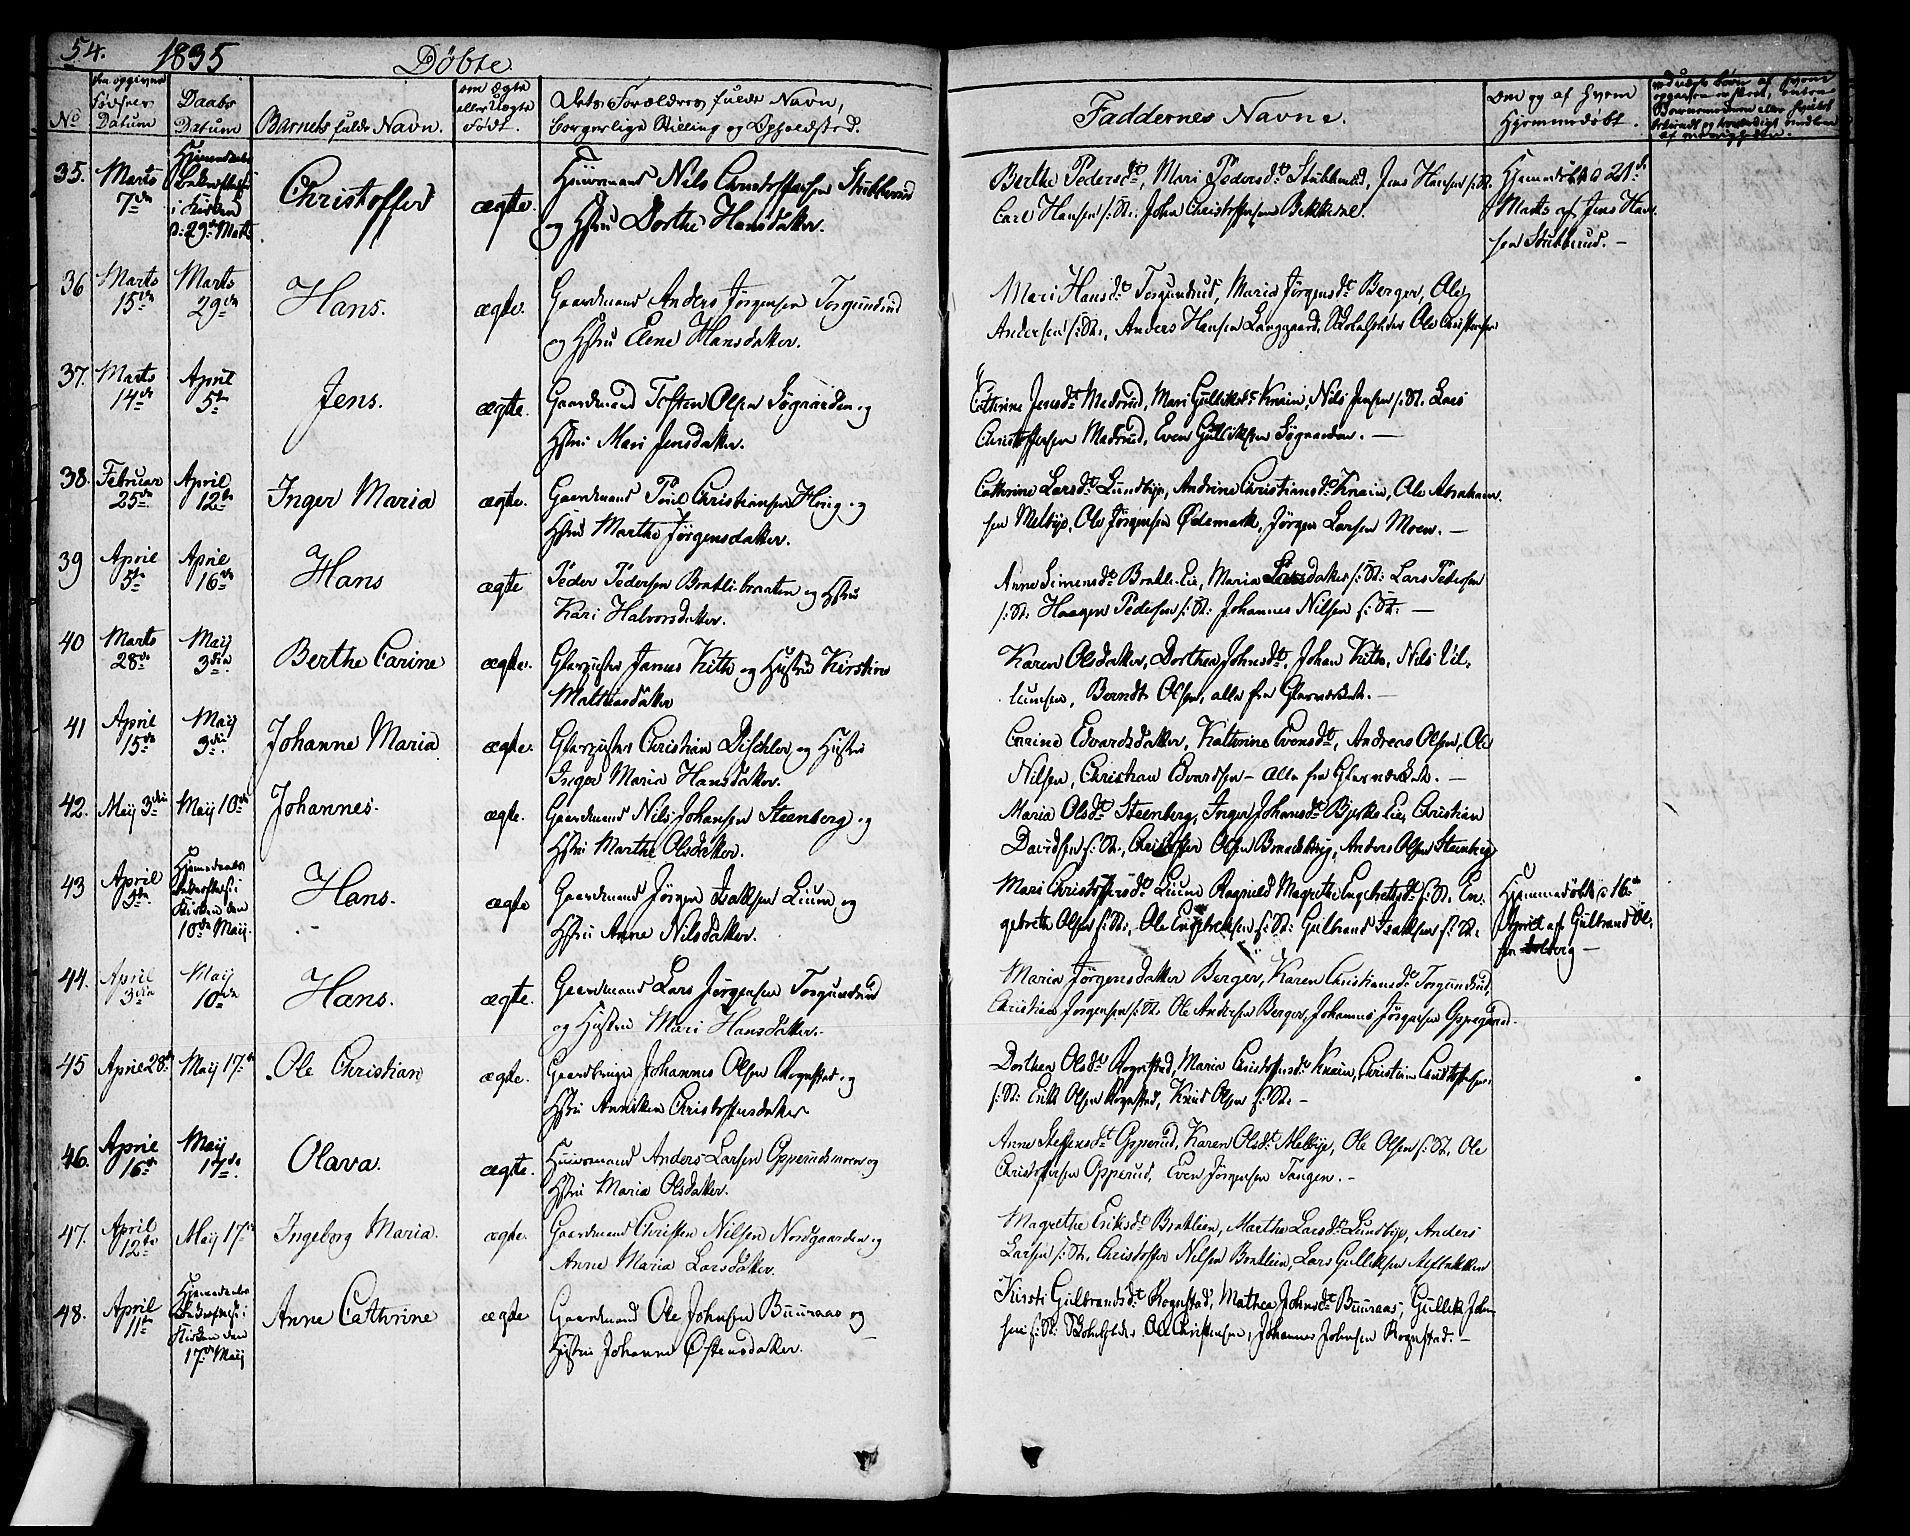 54. 1835 Døbte
No
den opgivne Fødsels Datum
Daabs Datum
Barnets fulde Navn.
om ægte eller Uægte Født.
Dets Forældres fulde Navn,
borgerlige Stilling og Opholdsted.
Faddernes Navne.
Om og af hvem
Hjemmedøbt.
35. Marts 7de
Hjemmedaaben
i Kirken
d: 29de Marts
Christoffer
ægte.
Huusmand Nils Christoffersen Stubberud
og Hstru Dorthe Hansdatter.
Berthe Pedersdtr, Mari Pedersdtr Stubberud, Jens Hansen s: St.
Carl Hansen s: St: John Christoffersen Bekkene.
Hjemmedøbt d 21de
Marts af Jens Han-
sen Stubberud. —
36 Marts 15de
Marts 29de
Hans.
ægte.
Gaardmand Anders Jørgensen Torgundrud
og Hstru Elene Hansdatter.
Mari Hansdtr Torgundrud, Maria Jørgensdtr Berger, Ole
Andersen s: St:, Anders Hansen Langgaard, Skoleholder Ole Christensen
37. Marts 14de
April 5te
Jens.
ægte.
Gaardmand Tosten Olsen Søgaarden og
Hstru Mari Jensdatter.
Cathrine Jensdtr Madsrud, Mari Gulliksdtr Knain, Nils Jensen s: St. Lars
Christoffersen Madsrud, Even Gulliksen Søgaarden. —
38. Februar 25de
April 12te
Inger Maria
ægte.
Gaardmand Poul Christiansen Hvig og
Hstru Marthe Jørgensdatter.
Cathrine Larsdtr Lundbye, Andrine Christiansdtr Knain, Ole Abraham-
sen Melbye, Ole Jørgensen Ødemark, Jørgen Larsen Moen. —
39 April 5te
April 16de
Hans
ægte
Peder Pedersen Bratli-braaten og Hstru
Kari Halvorsdatter.
Anne Simensdtr Bratli-Eie, Maria Larsdatter s: St: Lars Pedersen
s: St. Haagen Pedersen s: St: Johannes Nilsen s: St. —
40 Marts 28de
Maij 3die
Berthe Carine
ægte.
Glarpuster James Keith og Hustru Kirstine
Mathiasdatter
Karen Olsdatter, Dorthea Johnsdtr, Johan Keith, Nils Vil-
lumsen, Berndt Olsen, alle fra Glasværket. —
41 April 15de
Maij 3die
Johanne Maria
ægte.
Glarpuster Christian Dischler og Hustru
Inger Maria Hansdatter.
Carine Edvardsdatter, Katherine Evensdtr, Andreas Olsen, Ole
Nilsen, Christian Edvardsen — alle fra Glasværket. —
42. Maij 3die
Maij 10de
Johannes.
ægte.
Gaardmand Nils Johansen Steenberg og
Hstru Marthe Olsdatter.
Maria Olsdtr Steenberg, Inger Johansdtr Bjerke Eie, Christian
Davidsen s: St:, Christoffer Olsen Braadberg, Anders Olsen Steenberg
43 April 5te
Hjemmedaaben
i
Kirken den
10de Maij.
Hans.
ægte
Gaardmand Jørgen Isaksen Lium og
Hstru Anne Nilsdatter.
Mari Christoffersdtr Lium Ragnild Magrethe Engebretsdtr s: St. En-
gebrette Olsen s: St., Ole Engebretsen s: St: Gulbrand Isaksen s: St.
Hjemmedøbt d 16de
April af Gulbrand Ol-
sen
44. April 3die
Maij 10de
Hans.
ægte.
Gaardmand Lars Jørgensen Torgundrud
og Hustru Mari Hansdatter. —
Maria Jørgensdatter Berger, Karen Christiansdtr Torgundrud,
Christian Jørgensen s: St. Ole Andersen Berger, Johannes Jørgensen Oppegaard.
45 April 28de
Maij 17de
Ole Christian
ægte.
Gaardbruger Johannes Olsen Rognstad og
Hstru Anniken Christoffersdatter
Dorthea Olsdtr Rognstad, Maria Christoffersdtr Knain, Christian Christoffersen
s: St: Erik Olsen Rognstad, Knud Olsen s: St: —
46. April 16de
Maij 17de
Olava.
ægte.
Huusmand Anders Larsen Opperudsmoen og
Hstru Maria Olsdatter.
Anne Steffensdtr Opperud, Karen Olsdtr Melbye, Ole Olsen s: St. Ole
Christoffersen Opperud, Even Jørgensen Tangen. —
47. April 12te
Maij 17de
Ingeborg Maria.
ægte.
Gaardmand Christen Nilsen Nordgaarden og
Anne Maria Larsdatter.
Magrethe Eriksdtr Bratlien, Marthe Larsdtr Lundbye, Anders
Larsen s: St. Christoffer Nilsen Bratlien, Lars Gulliksen
48. April 11te
Hjemmedaaben
i
Kirken den
17de Maij
Anne Cathrine
ægte
Gaardmand Ole Johnsen Buuraas og
Hstru Johanne Østensdatter.
Kirsti Gulbrandsdtr Rognstad, Mathea Johnsdtr Buuraas, Gullik John-
sen s: St: Skoleholder Ole Christensen, Johannes Johnsen Rognstad. —